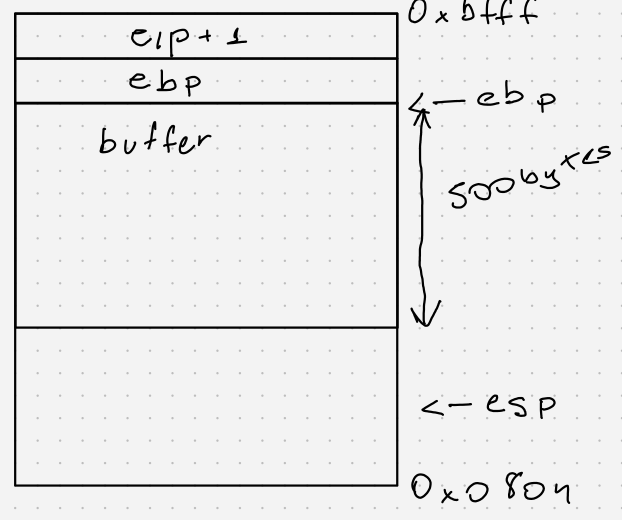 0xbfff
eip+1
ebp
<-ebp
buffer
500bytes
<-esp
0x0804